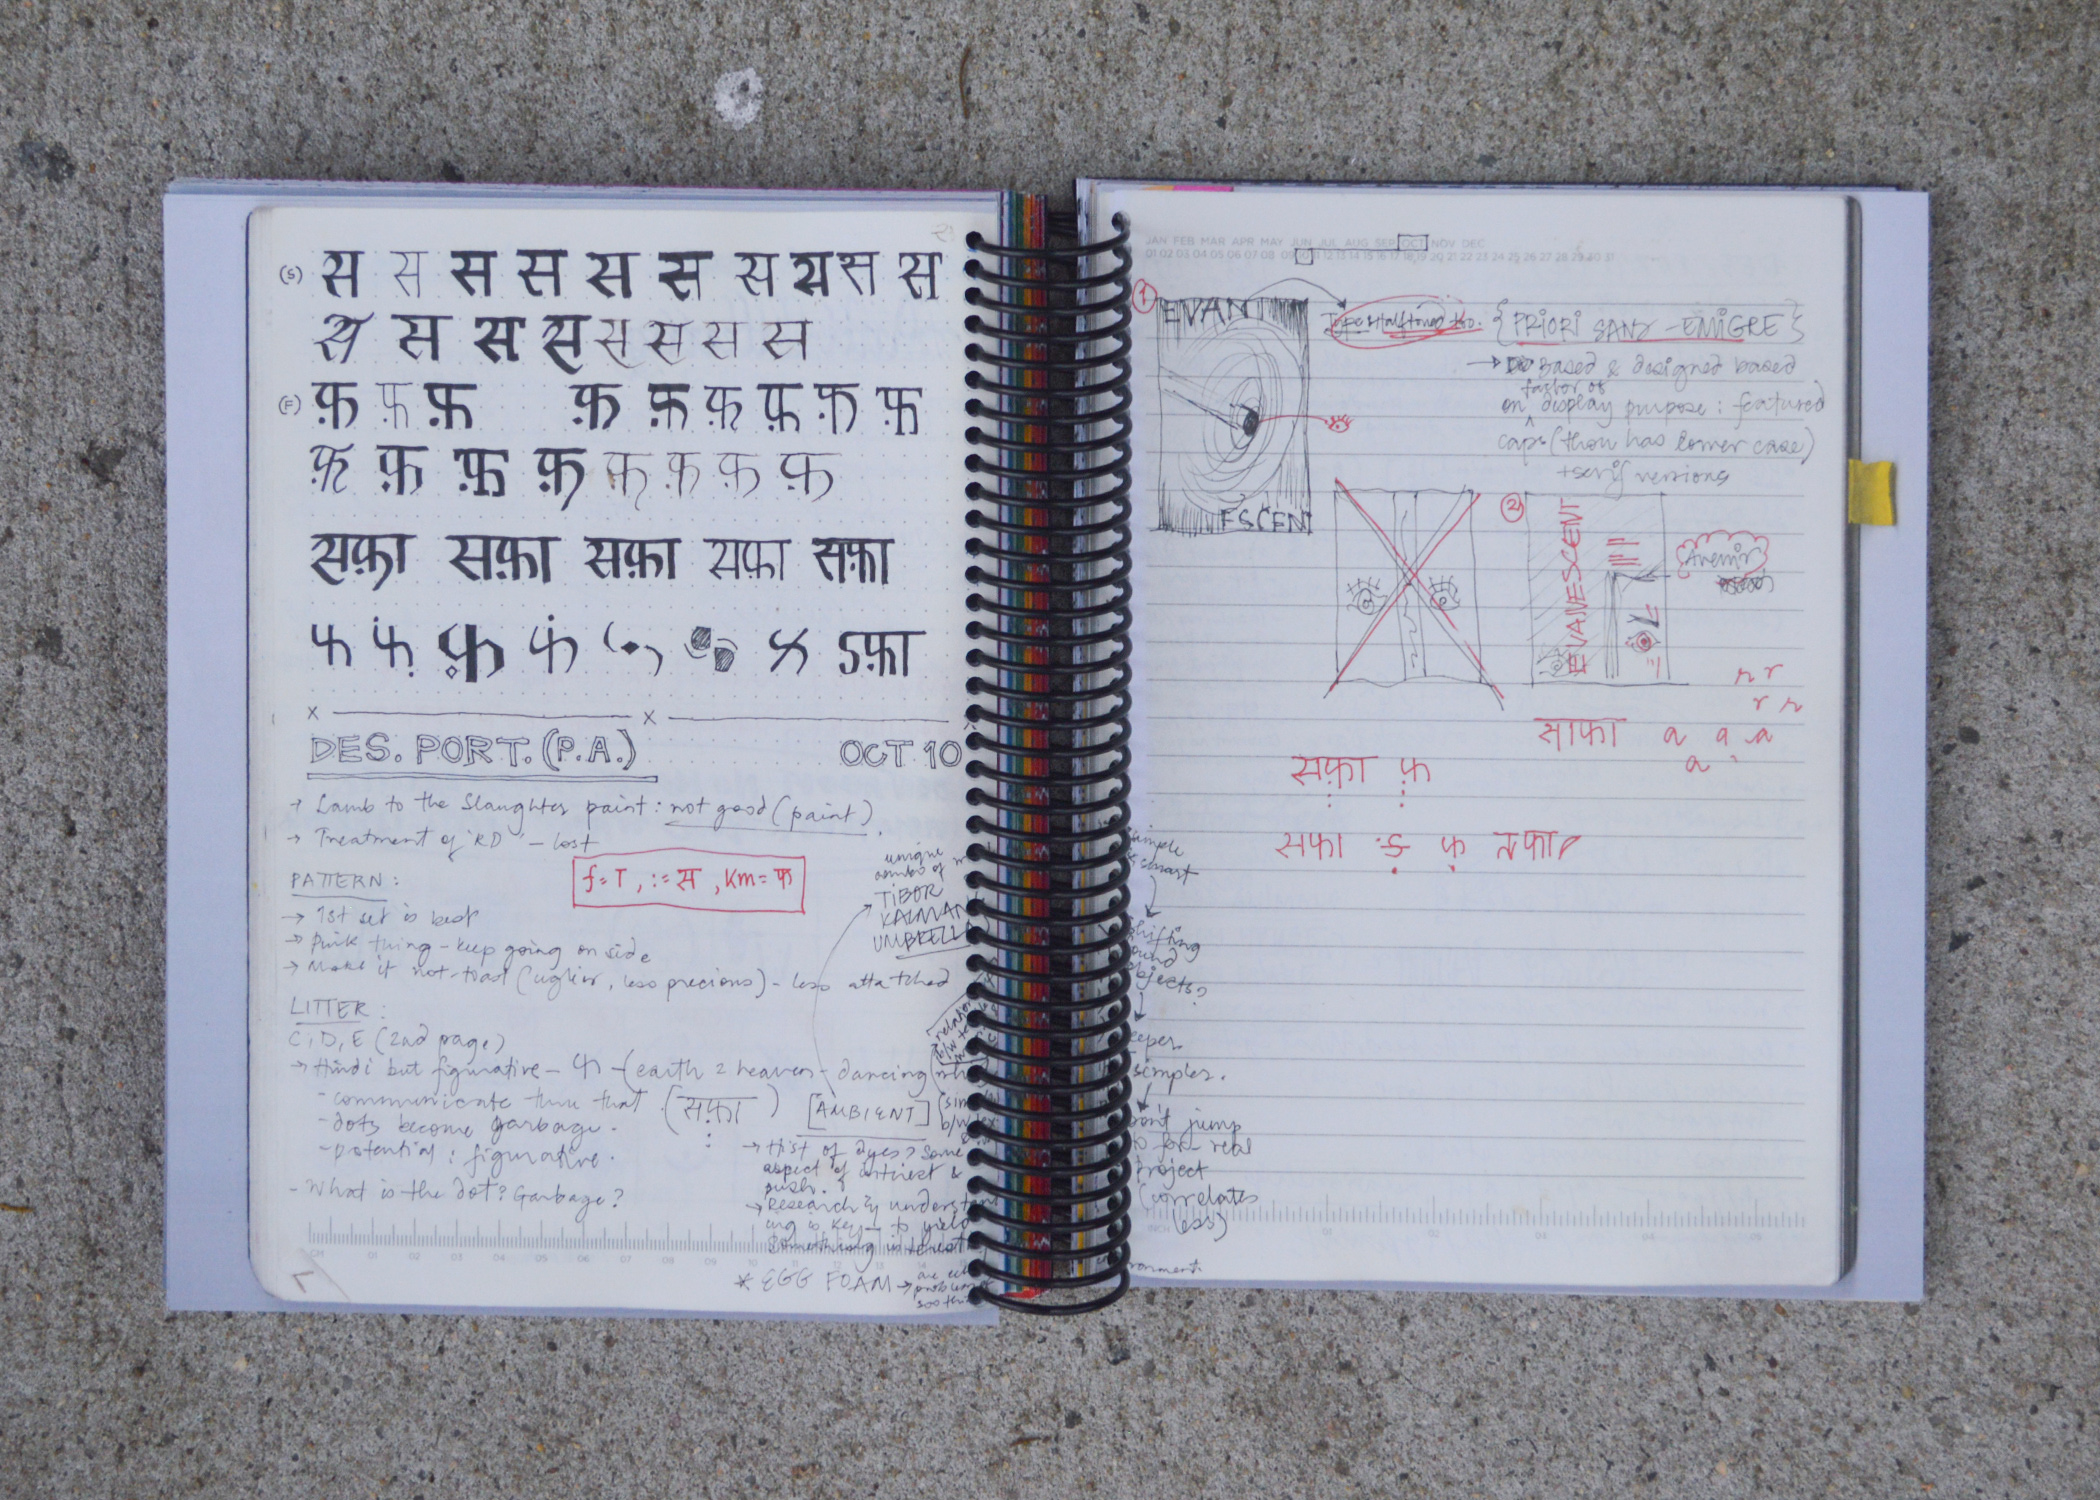 (S) स स स स स स स स स स
स स स स स स स स
(F) फ़ फ़ फ़ फ़ फ़ फ़ फ़ फ़ फ़
फ़ फ़ फ़ फ़ फ़ फ़ फ़ फ़
सफ़ा सफ़ा सफ़ा सफ़ा सफ़ा
DES. PORT. (P.A.) OCT 10
→ Lamb to the Slaughter paint: not good (paint).
→ Treatment of "RD" - lost
f = T, := स, Km = फ
PATTERN:
→ 1st set is best
→ Pink thing - keep going on side
→ Make it not-toad (uglier, less precious) - less attatched
unique
TIBOR
KALMAN
UMBRELLA
LITTER:
C, D, E (2nd page)
→ Hindi but figurative - फ - (earth 2 heaven - dancing
- communicate thru that (सफ़ा)
- dots become garbage.
- potential: figurative.
- What is the dot? Garbage?
[AMBIENT]
→ Hist of dyes? Some
aspect of interest &
push.
→ Research & understand
ing is key - to yield
something
* EGG FOAM →
JAN FEB MAR APR MAY JUN JUL AUG SEP OCT NOV DEC
01 02 03 04 05 06 07 08 09 10 11 12 13 14 15 16 17 18 19 20 21 22 23 24 25 26 27 28 29 30 31
1
EVANT
ESCENT
Type Halftoned too.
{PRIORI SANS - EMIGRE}
→ Based & designed based
factor of
on display purpose: featured
caps (thou has lower case)
+ serif versions
2
EVANESCENT
Avenir
r r
r r
साफा a a a
a
सफ़ा फ़
सफा
simple
smart
shifting
objects?
simpler.
don't jump
to for-real
project
(correlates
less)